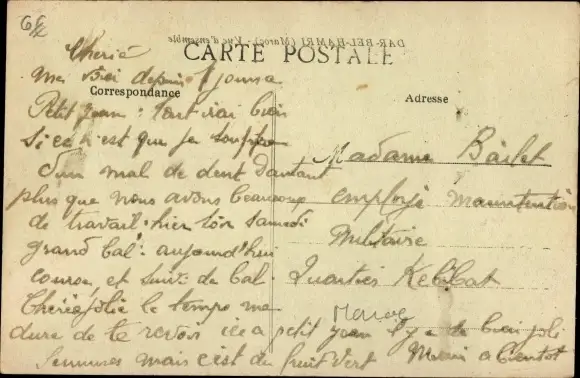 6f
DAR-BEL-HAMRI (Maroc) - Vue d'ensemble
CARTE POSTALE
Correspondance
Adresse
Cheriè
Me Voici depuis 8 jours a
Petit Jean: tout vai bien
Si ce n'est que je souffre
d'un mal de dent d'autant
plus que nous avons beaucoup
de travail. hier soir samedi
grand bal: aujourd'hui
course et suivi de bal.
Cherie Jolie le temps me
dure de te revoir ici a petit Jean il y a de bien joli
femmes mais c'est du fruit vert
Madame Bailet
employé Manutention
Militaire
Quartier Kebibat
Maroc
a bientot